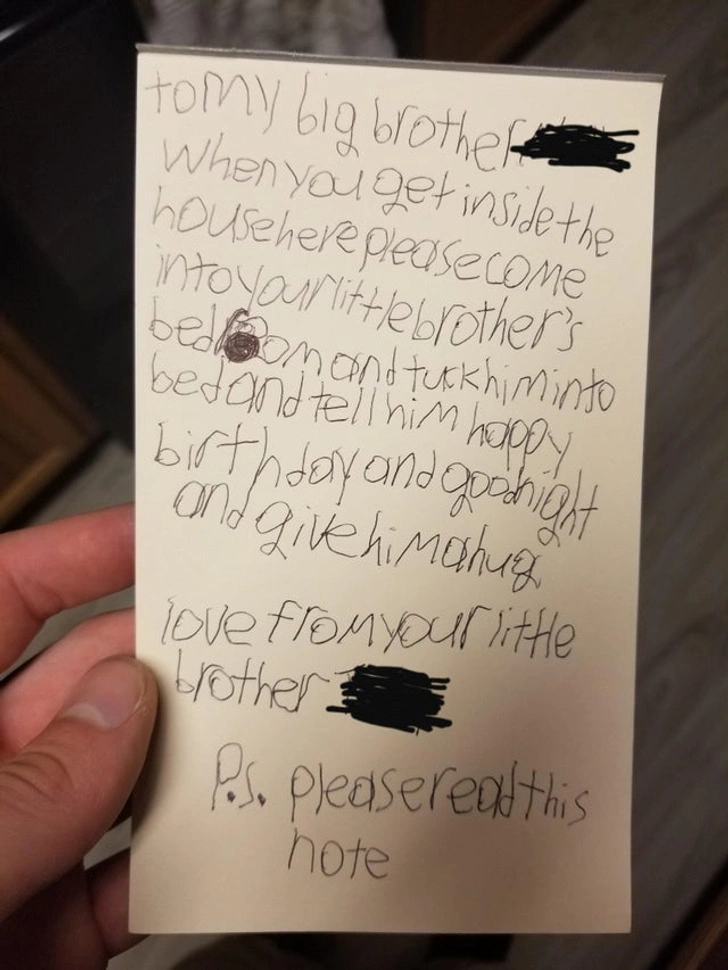 to my big brother
When you get inside the
house here please come
into your little brother's
bedroom and tuck him into
bed and tell him happy
birthday and goodnight
and give him a hug
love from your little
brother
P.s. please read this
note